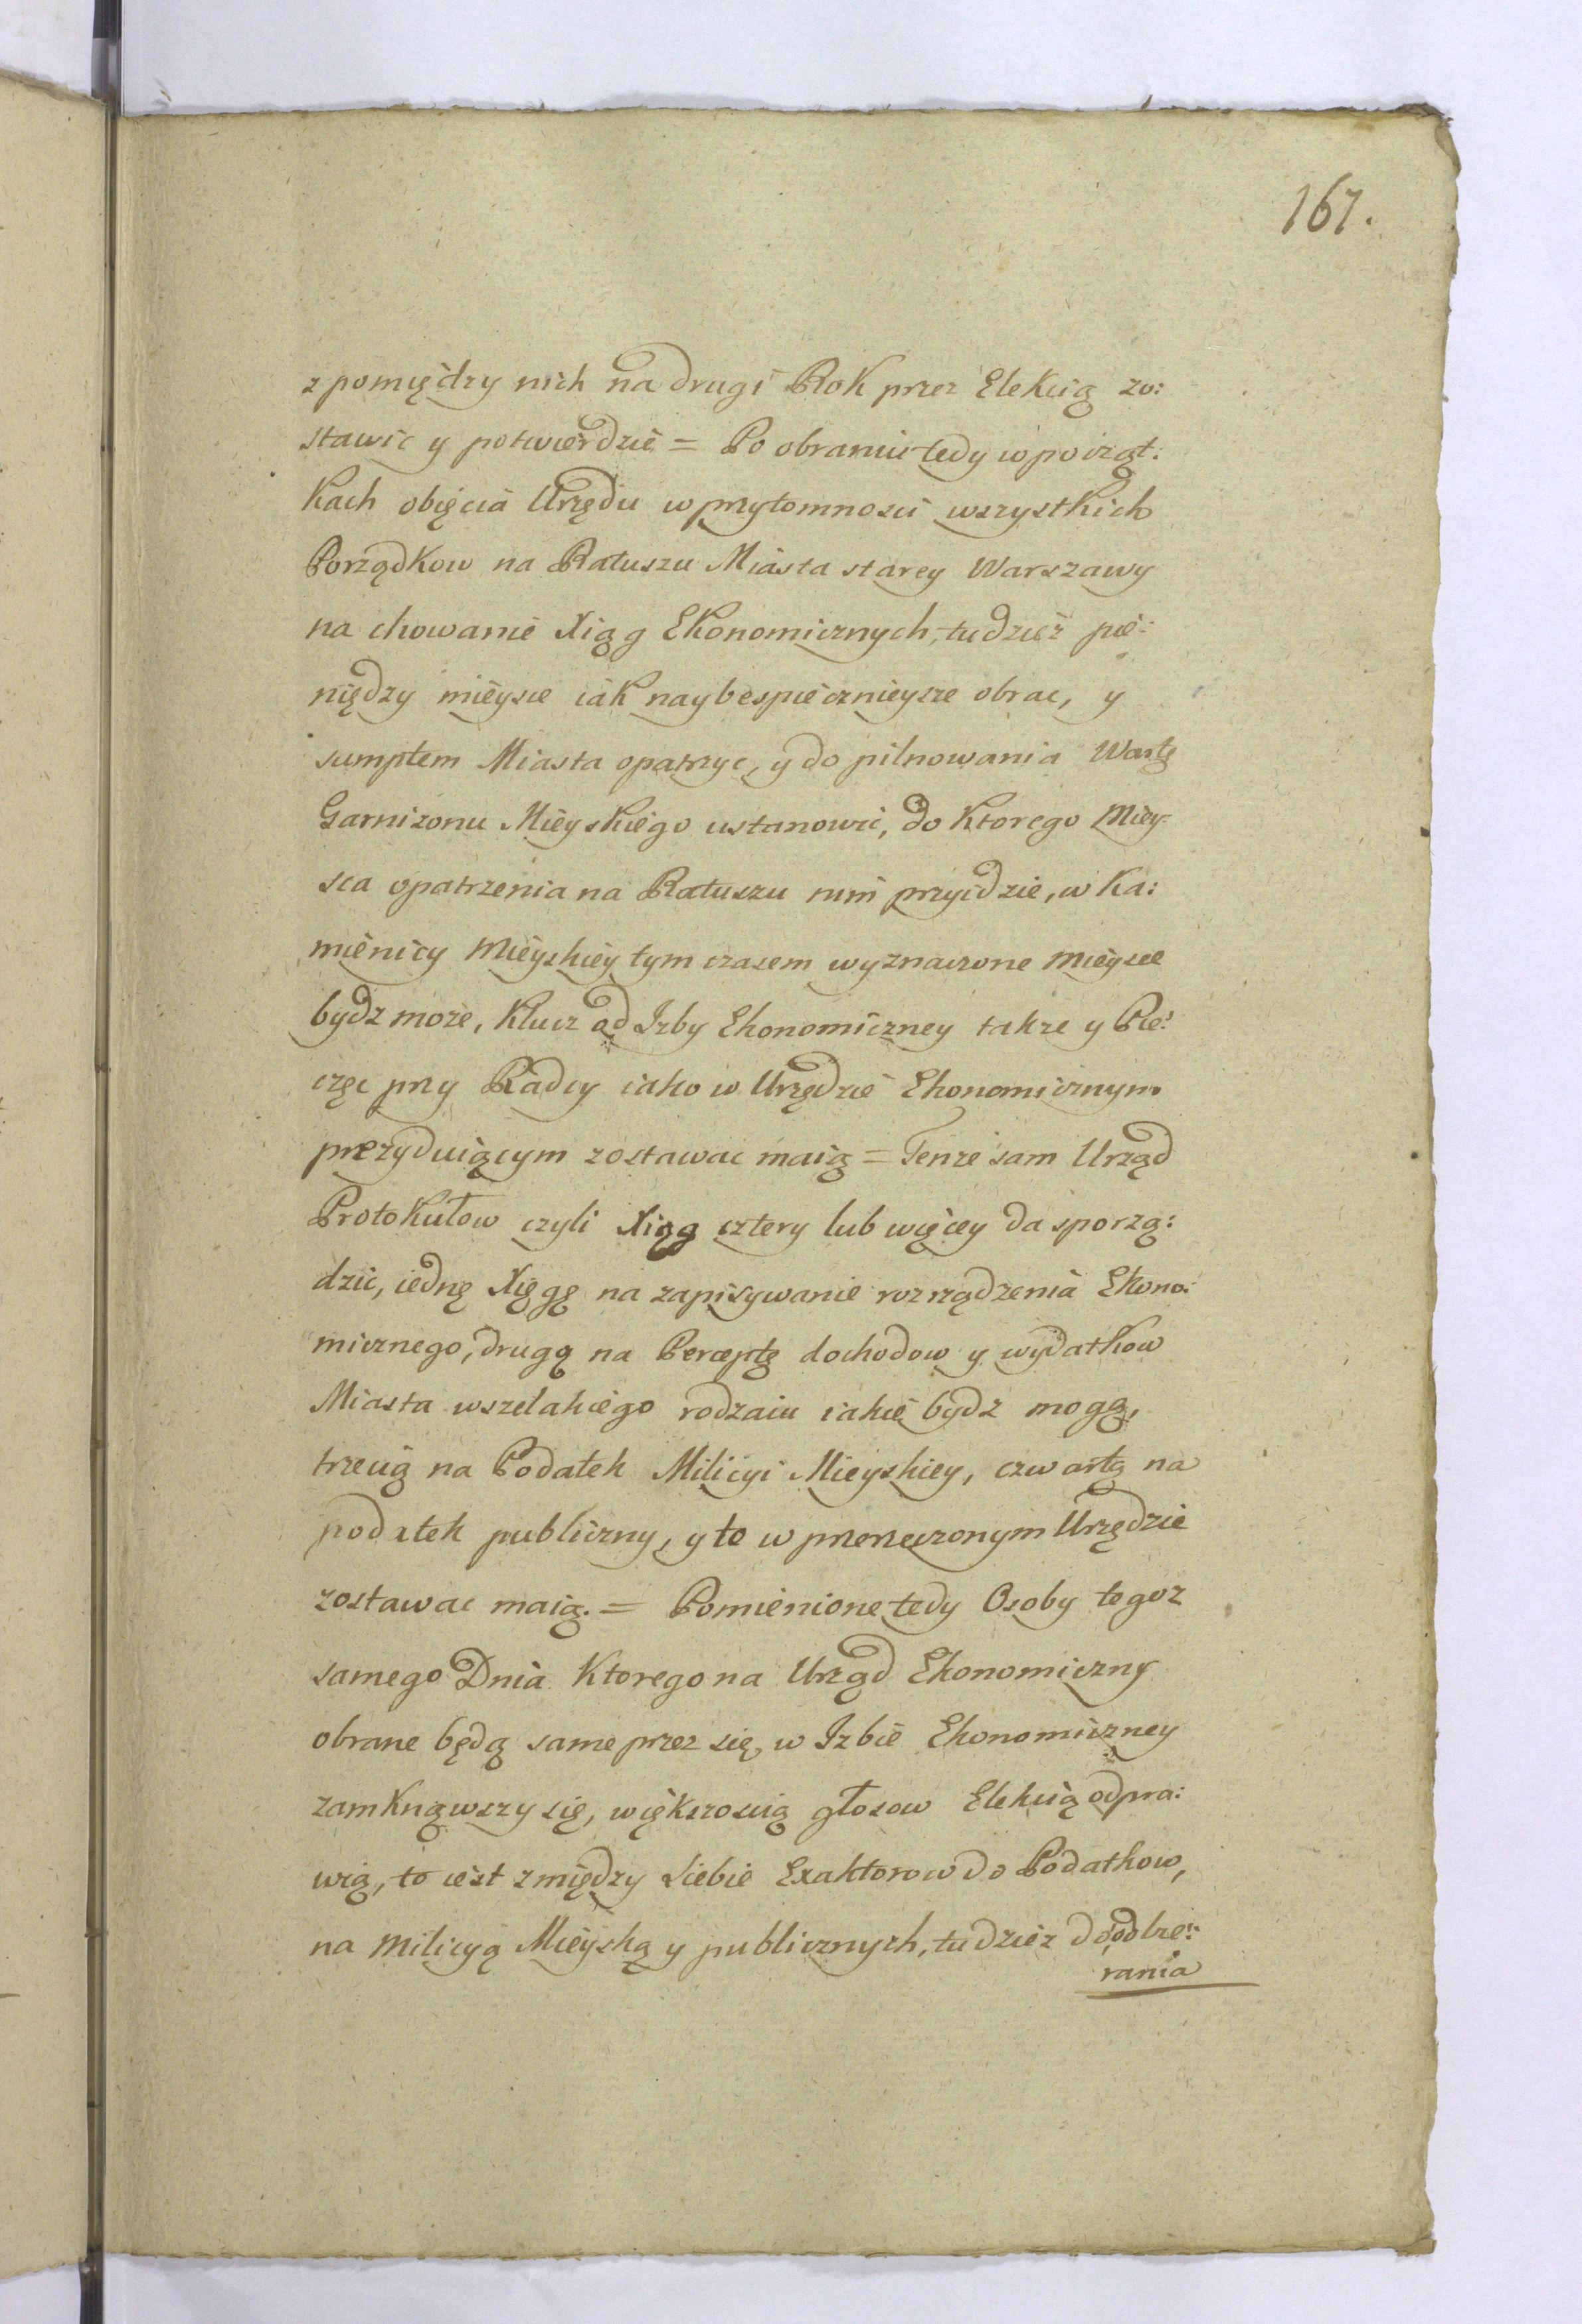 167.
z pomiędzy nich na drugi Rok przez Elekcią zo:
stawic y potwierdzic = Po obraniu tedy w począt:
kach obięcia Urzędu w przytomnosci wszystkich
Porządkow na Ratuszu Miasta starey Warszawy
na chowanie Xiąg Ekonomicznych, tudzież pie:
niędzy mieysce iak naybespiecznieysze obrac, y
sumptem Miasta opatrzyc, y do pilnowania Wartę
Garnizonu Mieyskiego ustanowic, do ktorego Miey:
sca opatrzenia na Ratuszu nim przyidzie, w Ka:
mienicy Mieyskiey tym czasem wyznaczone mieysce
bydz może, Klucz od Izby Ekonomiczney także y Pie:
częc przy Radcy iako w Urzędzie Ekonomicznym
prezyduiącym zostawac maią = Tenże sam Urząd
Protokułow czyli Xiąg cztery lub więcey da sporzą:
dzic, iednę Xięgę na zapisywanie rozrządzenia Ekono:
micznego, drugą na Perceptę dochodow y wydatkow
Miasta wszelakiego rodzaiu iakie bydz mogą,
trzecią na Podatek Milicyi Mieyskiey, czwartą na
podatek publiczny, y to w przerzeczonym Urzędzie
zostawac maią. = Pomienione tedy Osoby tegoz
samego Dnia ktorego na Urząd Ekonomiczny
obrane będą same przez się, w Izbie Ekonomiczney
zamknąwszy się, większoscią głosow Elekcią odpra:
wią, to iest z między siebie Exaktorow do Podatkow,
na Milicyą Mieyską y publicznych, tudzież do odbie:
rania